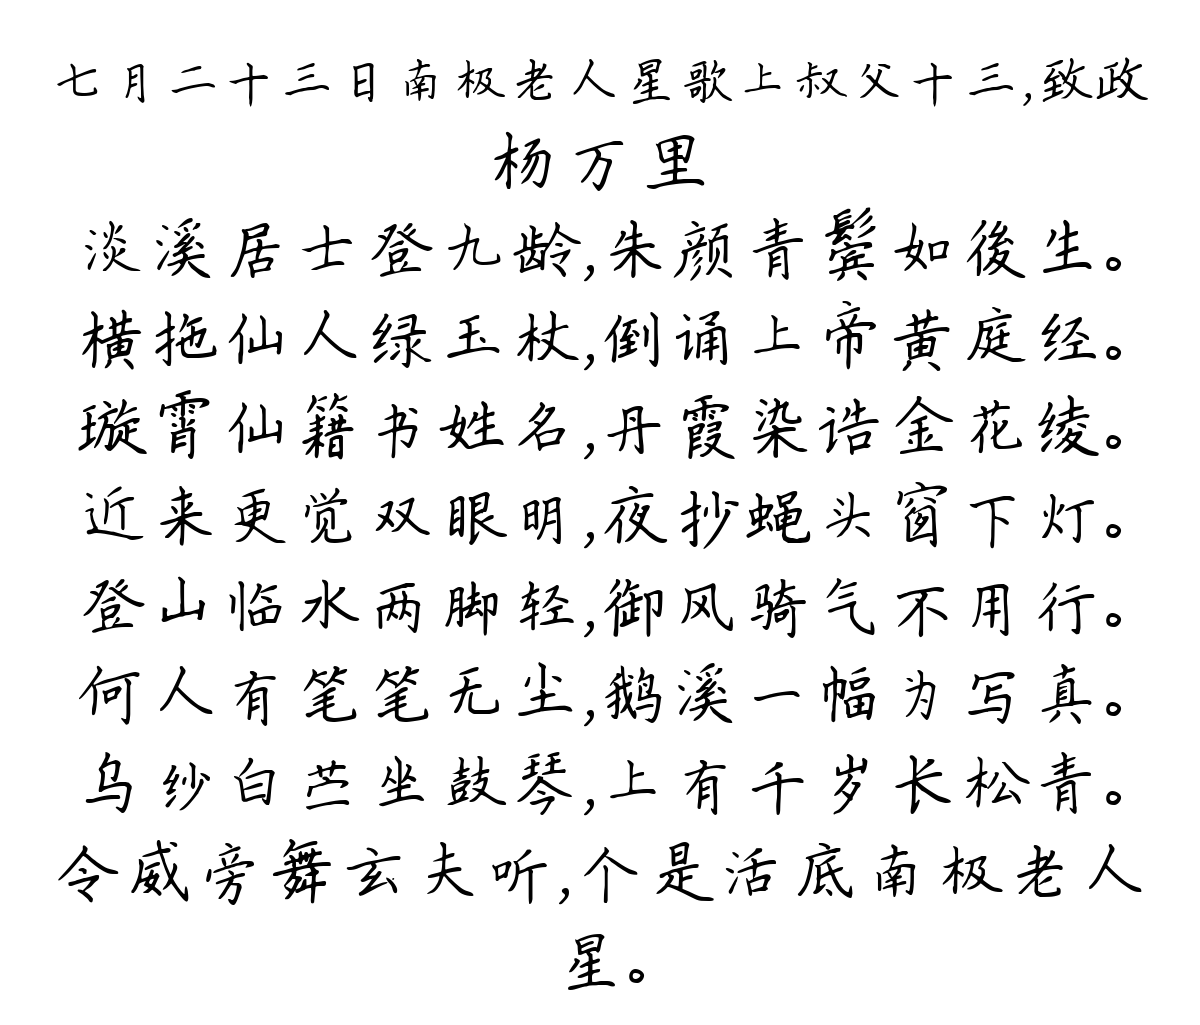 七月二十三日南极老人星歌上叔父十三,致政
杨万里
淡溪居士登九龄,朱颜青鬓如後生。
横拖仙人绿玉杖,倒诵上帝黄庭经。
璇霄仙籍书姓名,丹霞染诰金花绫。
近来更觉双眼明,夜抄蝇头窗下灯。
登山临水两脚轻,御风骑气不用行。
何人有笔笔无尘,鹅溪一幅为写真。
乌纱白苎坐鼓琴,上有千岁长松青。
令威旁舞玄夫听,个是活底南极老人
星。